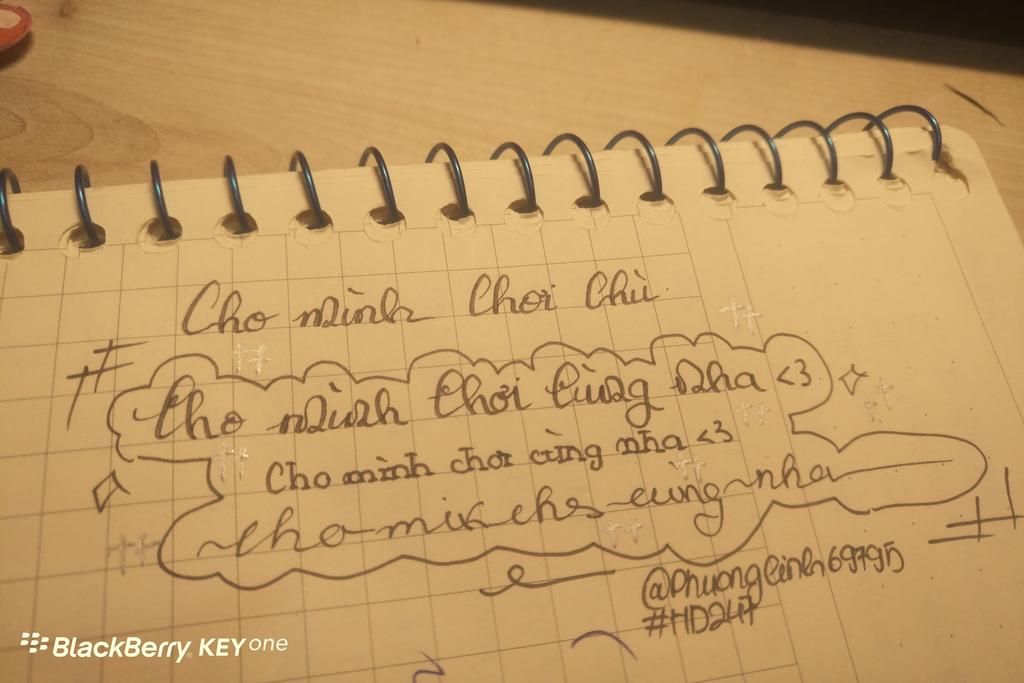 Cho mình chơi chù
Cho mình chơi cùng nha <3
Cho mình chơi cùng nha <3
cho mìn chơ cùng nha
@Phuonglinh69795
#HD247
BlackBerry KEYone